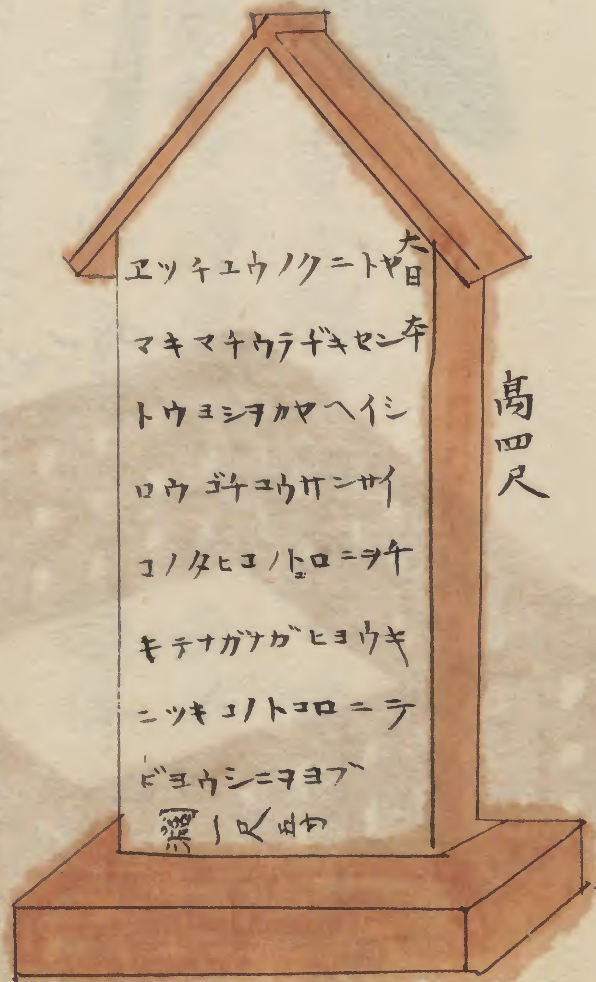 大日本
ヱツチユウノクニトヤ
マキマチウラヂキセン
トウヨシヲカヤヘイシ
ロウゴチユウサンサイ
コノタヒコノトコロニヲチ
キテナガナガヒヨウキ
ニツキコノトコロニテ
ビヨウシニヲヨブ
濶一尺五寸
高四尺